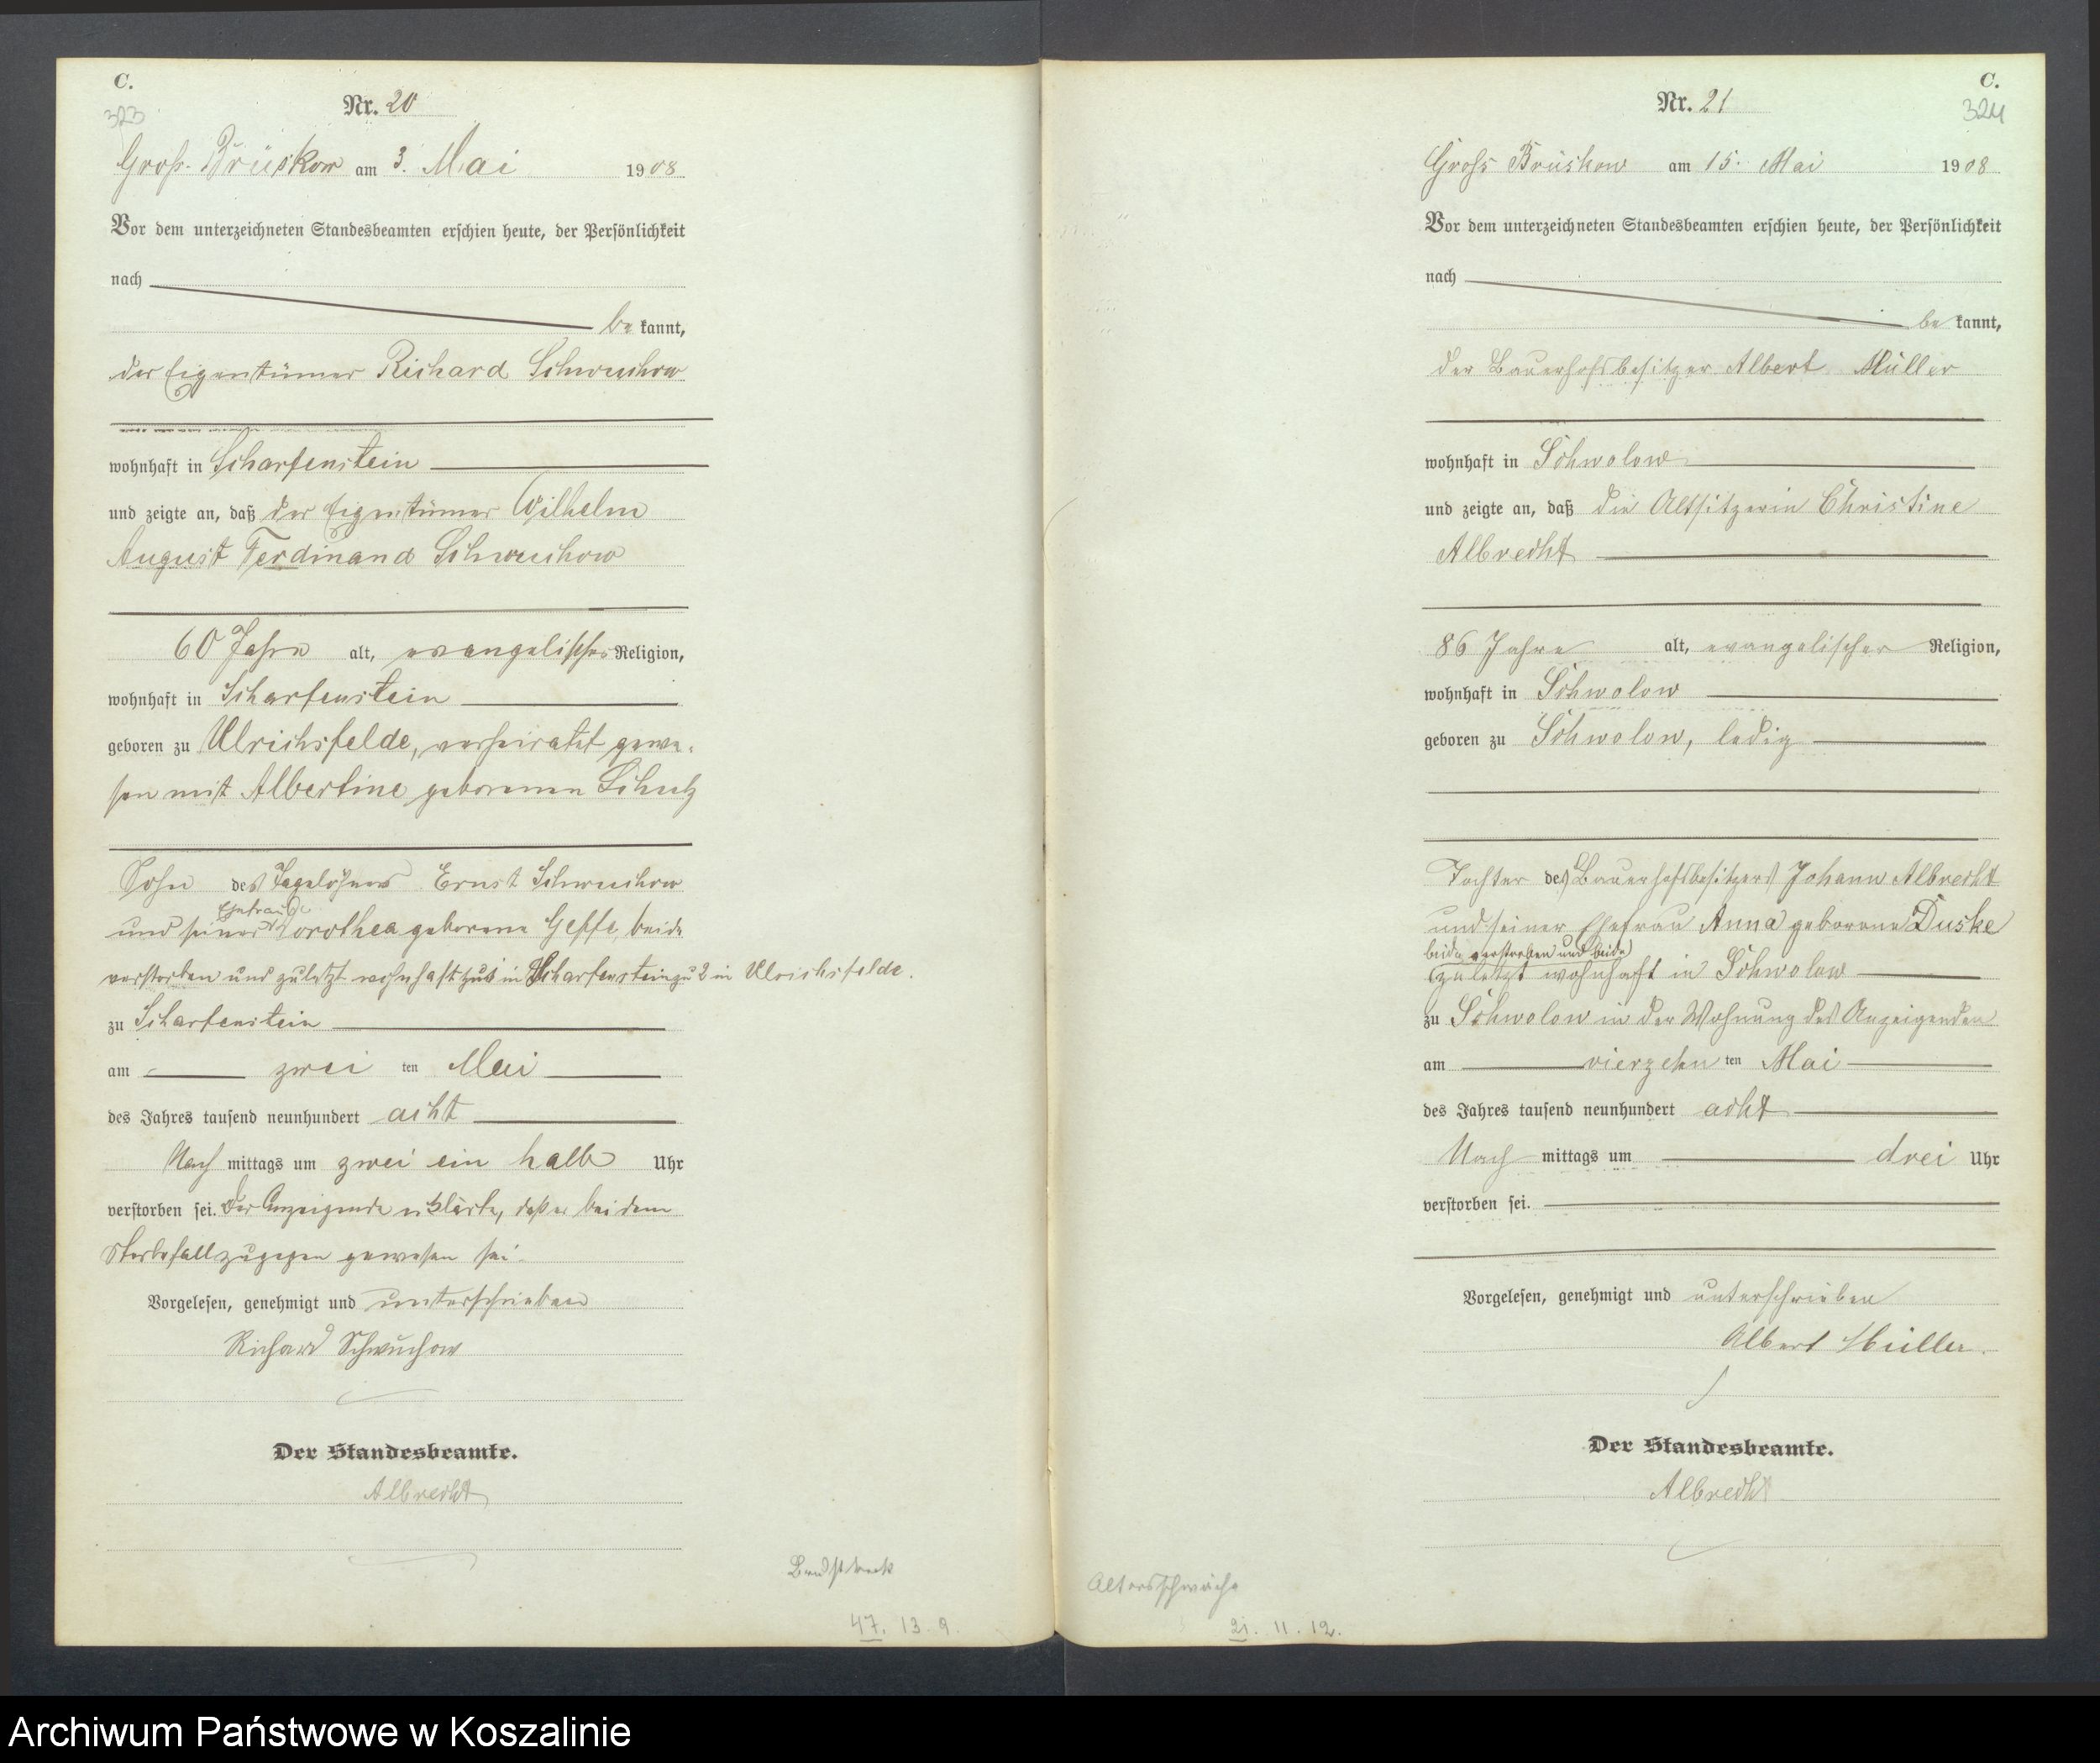 C.
323
Nr. 20
Groß-Brüskow am 3. Mai 1908
Vor dem unterzeichneten Standesbeamten erschien heute, der Persönlichkeit
nach
be kannt,
der Eigentümer Richard Schwuchow
wohnhaft in Scharfenstein
und zeigte an, daß der Eigentümer Wilhelm
August Ferdinand Schwuchow
60 Jahre alt, evangelischer Religion,
wohnhaft in Scharfenstein
geboren zu Ulrichsfelde, verheiratet gewe-
sen mit Albertine geborenen Schulz
Sohn des Tagelöhners Ernst Schwuchow
Ehefrau
und seiner Dorothea geborene beide
verstorben und zuletzt wohnhaft zu 1 in Scharfenstein zu 2 in Ulrichsfelde.
zu Scharfenstein
am zwei ten Mai
des Jahres tausend neunhundert acht
Nach mittags um zwei ein halb Uhr
verstorben sei. Der Anzeigende erklärte, daß er bei dem
Sterbefall zugegen gewesen sei.
Vorgelesen, genehmigt und unterschrieben
Richard Schwuchow
Der Standesbeamte.
Albrecht
47. 13. 9.
C.
324
Nr. 21
Groß Brüskow am 15. Mai 1908
Vor dem unterzeichneten Standesbeamten erschien heute, der Persönlichkeit
nach
be kannt,
der Bauerhofsbesitzer Albert Müller
wohnhaft in Schwolow
und zeigte an, daß die Altsitzerin Christine
Albrecht
86 Jahre alt, evangelischer Religion,
wohnhaft in Schwolow
geboren zu Schwolow, ledig
Tochter des Bauerhofsbesitzers Johann Albrecht
und seiner Ehefrau Anna geborene Duske
beide verstorben und beide
zuletzt wohnhaft in Schwolow
zu Schwolow in der Wohnung des Anzeigenden
am vierzehn ten Mai
des Jahres tausend neunhundert acht
Nach mittags um drei Uhr
verstorben sei.
Vorgelesen, genehmigt und unterschrieben
Albert Müller.
Der Standesbeamte.
Albrecht
Altersschwäche
21. 11. 12.
Archiwum Państwowe w Koszalinie